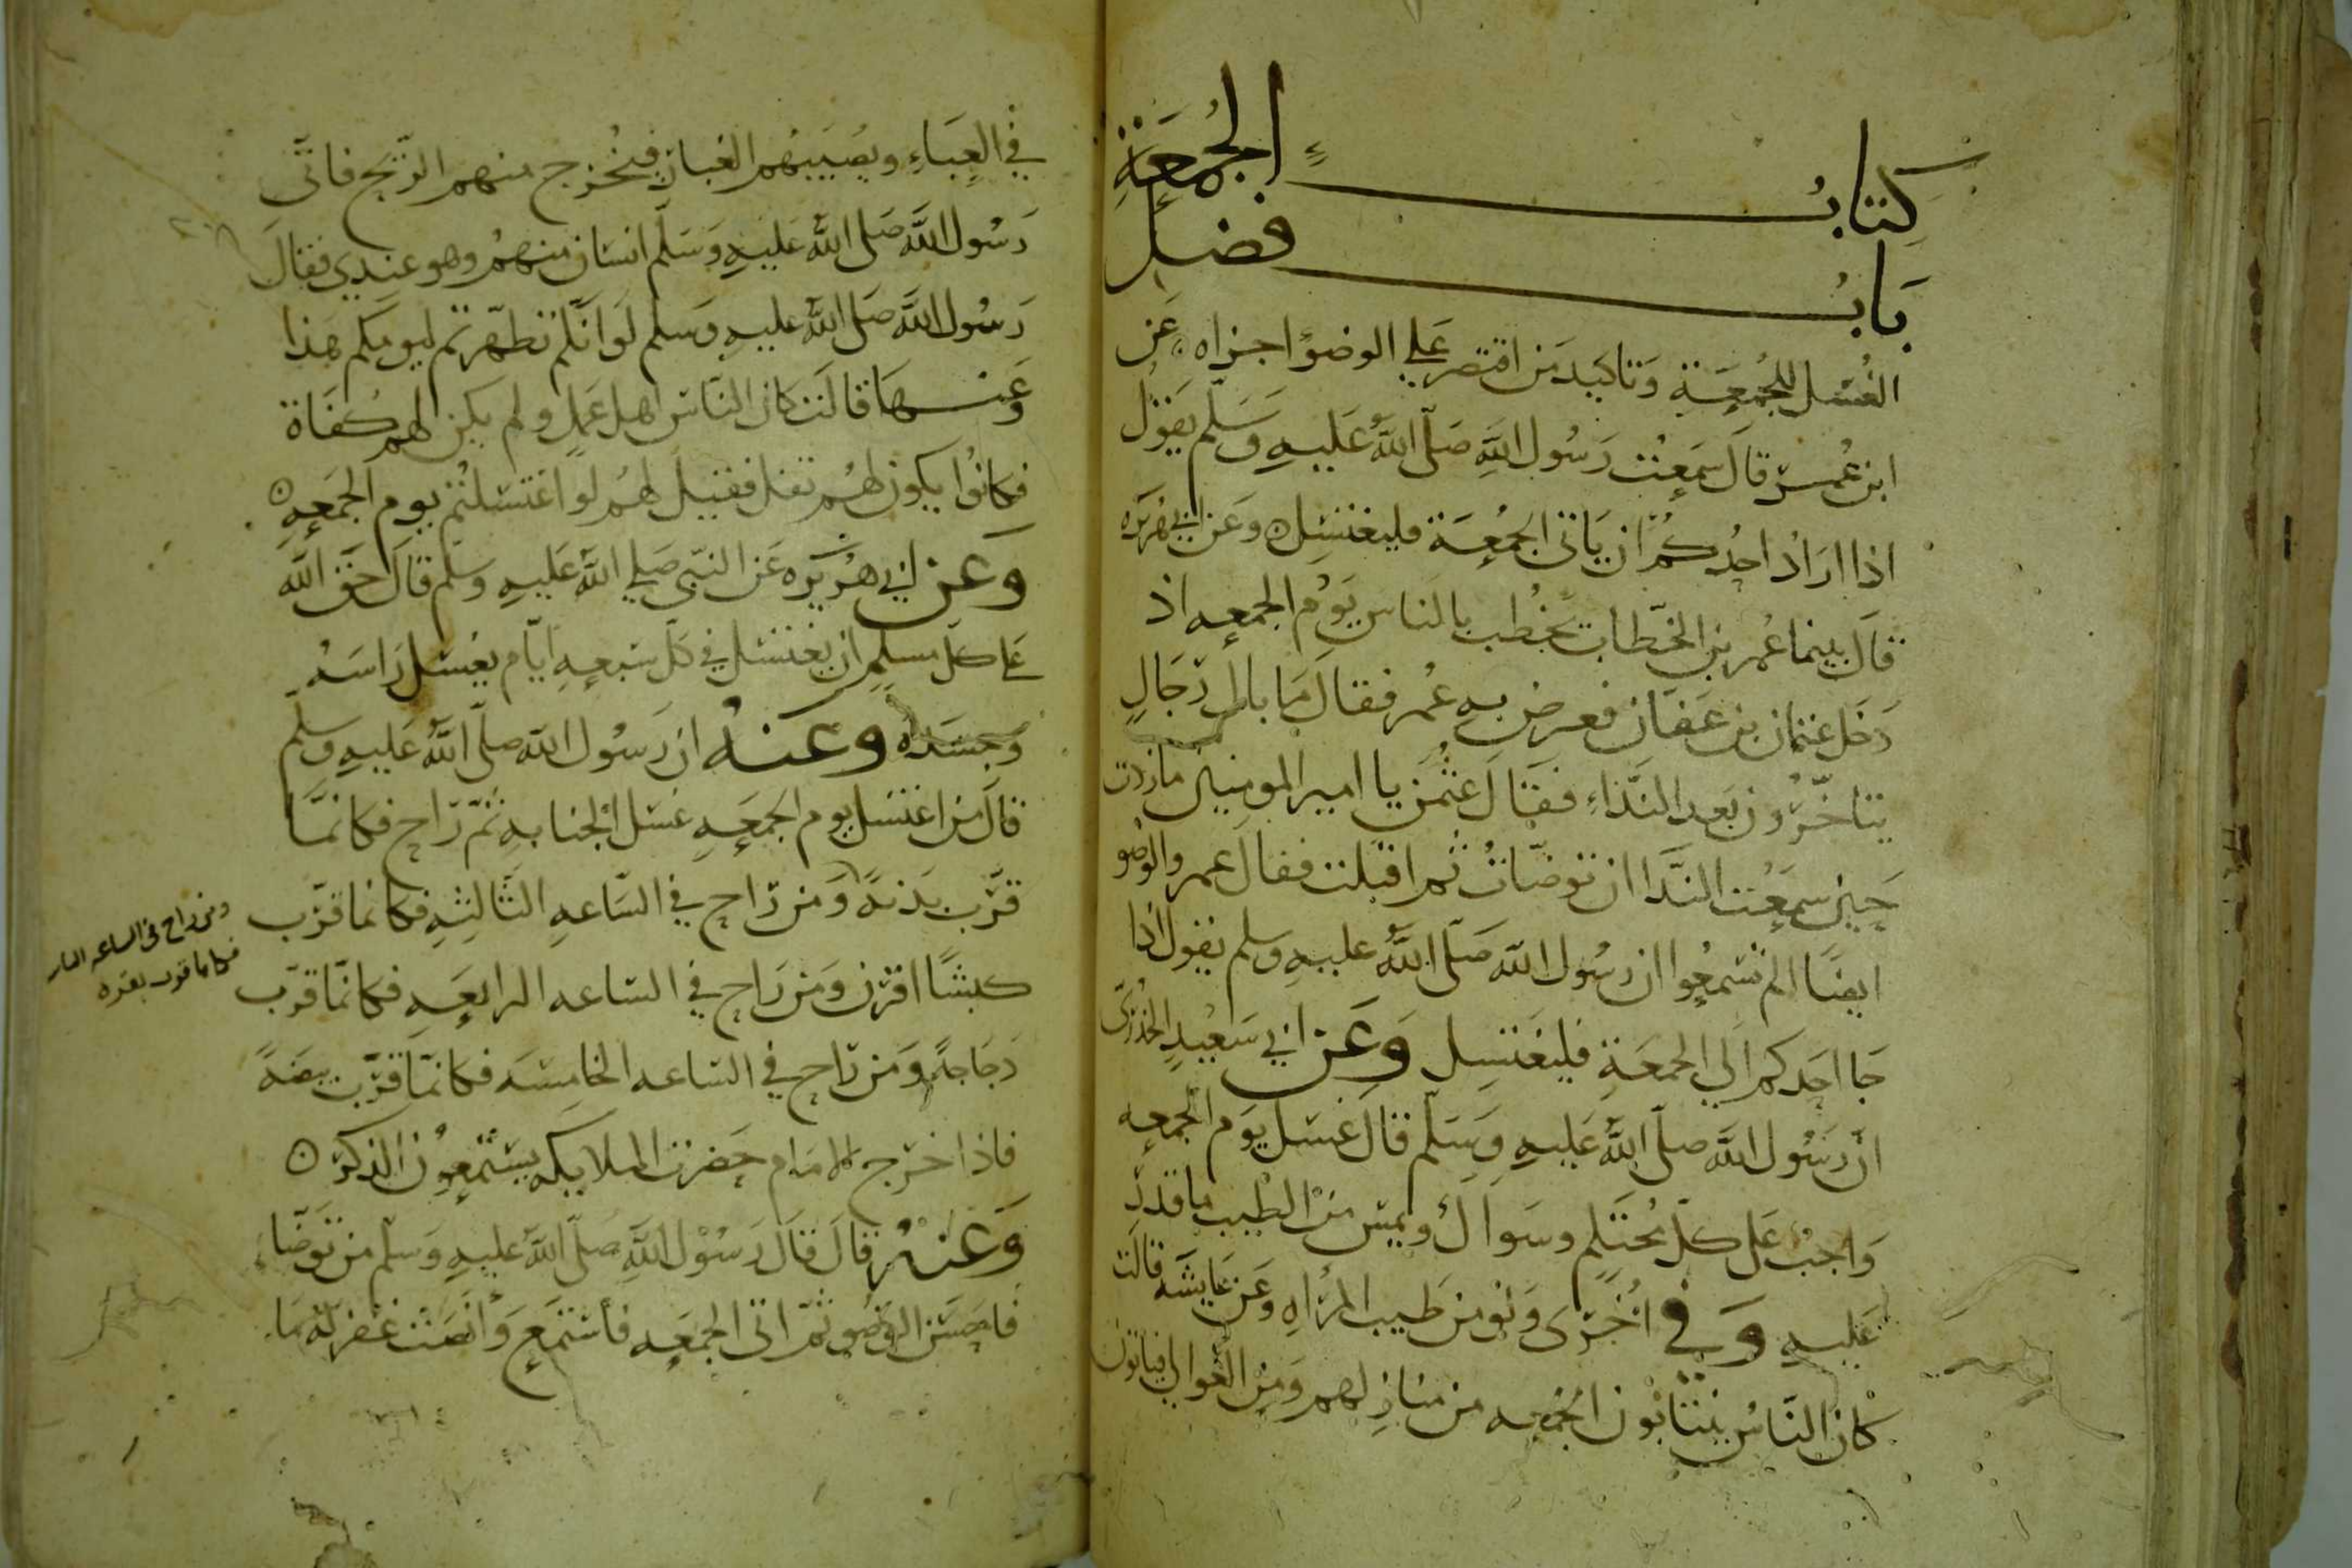 كتابُ الجُمعَةِ
بَابُ فضل
الغُسْل للجُمعَةِ وَتاكيد مَن اقتصر عَلي الوضوءِ اجزاه عَن
ابن عُمر قالَ سَمِعْت رَسُول اللهِ صَلّى اللهُ عَليهِ وَسَلّم يَقوُل
اذا ارَادَ احدُكُمْ ان يَاتي الجُمُعَة فليغتسِل وعَن ابي هُريره
قالَ بينما عُمر بن الخَطاب يخطُب بالناس يَوْم الجمعه اذ
دَخَل عثمان بن عَفّان فعرض بهِ عُمر فقالَ مَا بال رجَالٍ
يتاخّرُون بَعد النّدَاءِ فقالَ عثمن يا امير المومنين مازدت
حِين سمِعْت النّدَا ان توضّاتُ ثم اقبلت فقالَ عمر والوُضو
ايضًا الم تسْمعُوا ان رسُول الله صَلّى اللهُ عليهِ وسلم يقول اذا
جَا احَدكم الي الجمعَةِ فليغتسِل وَعَن ابي سَعيدٍ الخُدْرِيّ
انّ رَسُول اللهِ صلّى اللهُ عَليهِ وَسَلّم قالَ غسْل يَوم الجمعِه
وَاجبٌ عَلى كلّ مُحتَلِمٍ وسَواكٌ ويمسّ منْ الطّيب ما قدر
عَليهِ وَفي اخُرَى وَلو من طيب المرْاهِ وعَن عَايشَه قالت
كانَ النّاسُ ينتابُون الجُمعِه من منازلهم وَمِن العَوالي فياتون
في العِبَاءِ ويصُيبهُم الغبار فيخُرج منهم الرّيح فاتَى
رَسُول اللهِ صَلى اللهُ عَليهِ وَسَلّم انسان منهمُ وهو عندِي فقالَ
رَسُول اللهِ صَلى اللهُ عليهِ وسلم لَوانّكم تطهّرتم ليومكم هذا
وَعَنها قالَت كان النّاس اهل عَملٍ ولم يكن لهم كُفَاة
فكانوُا يكون لهُم تفل فقيل لهُم لو اغتسلتُم يوم الجمَعِه
وعَن ابي هُرَيرَه عَن النّبي صَلي اللهُ عَليهِ وسَلم قالَ حَق اللهِ
عَلى كلّ مسلمٍ ان يغتسل في كلّ سَبعهِ ايّام يغسل رَاسَهُ
وجسَدَه وعَنهُ ان رَسُول الله صلّى اللهُ عَليهِ وسلّم
قالَ من اغتسل يوم الجمعَهِ غسْل الجنابهِ ثمّ رَاح فكانمّا
قرّب بَدنهً وَمن رَاح في السّاعهِ الثّالثِهِ فكانما قرّب
ومن راح في الساعه الثانيه
فكانما قرب بقره
كبشًا اقرن وَمن رَاح في السّاعه الرابعَهِ فكانمّا قرّب
دَجَاجهً وَمن رَاح في السّاعه الخامِسَه فكانمّا قرّب بيضَهً
فاذا خرَج الامَام حَضرت الملايكه يسْتمعِوُن الذكرَ
وَعَنْهُ قالَ قالَ رَسُوْل اللهِ صَلّى اللهُ عليهِ وَسَلّم من تَوَضّاءَ
فاحسَن الوضُو ثمّ اتى الجمعَه فأستمَع وَانصَت غفر لهُ مَا